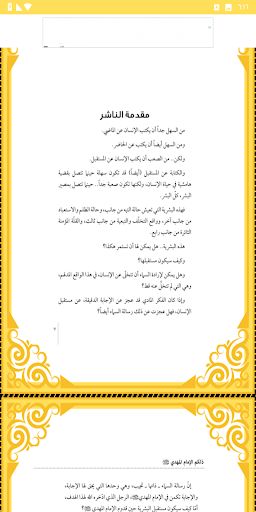 ٦:٢٦
مقدمة الناشر
من السهل جداً أن يكتب الإنسان عن الماضي.
ومن السهل أيضاً أن يكتب عن الحاضر.
ولكن.. من الصعب أن يكتب الإنسان عن المستقبل.
والكتابة عن المستقبل (أيضاً) قد تكون سهلة حينما تتصل بقضية
هامشية في حياة الإنسان، ولكنها تكون صعبة جداً.. حينما تتصل بمصير
البشر، كل البشر.
فهذه البشرية التي تعيش حالة التيه من جانب، وحالة الظلم والاستعباد
من جانب آخر، وواقع التخلّف والتبعية من جانب ثالث، والقلّة المؤمنة
الثائرة من جانب رابع.
هذه البشرية.. هل يمكن لها أن تستمر هكذا؟
وكيف سيكون مستقبلها؟
وهل يمكن لإرادة السماء أن تتخلّى عن الإنسان، في هذا الواقع المدلهم،
وهي التي لم تتخلَّ عنه قط؟
وإذا كان الفكر المادي قد عجز عن الإجابة الدقيقة، عن مستقبل
الإنسان، فهل عجزت عن ذلك رسالة السماء أيضاً؟
ذلكم الإمام المهدي
إن رسالة السماء ـ ذاتها ـ تجيب، وهي وحدها التي يحق لها الإجابة،
والإجابة تكمن في الإمام المهدي الرجل الذي ادّخره الله لهذا الهدف،
أمّا كيف سيكون مستقبل البشرية حين قدوم الإمام المهدي